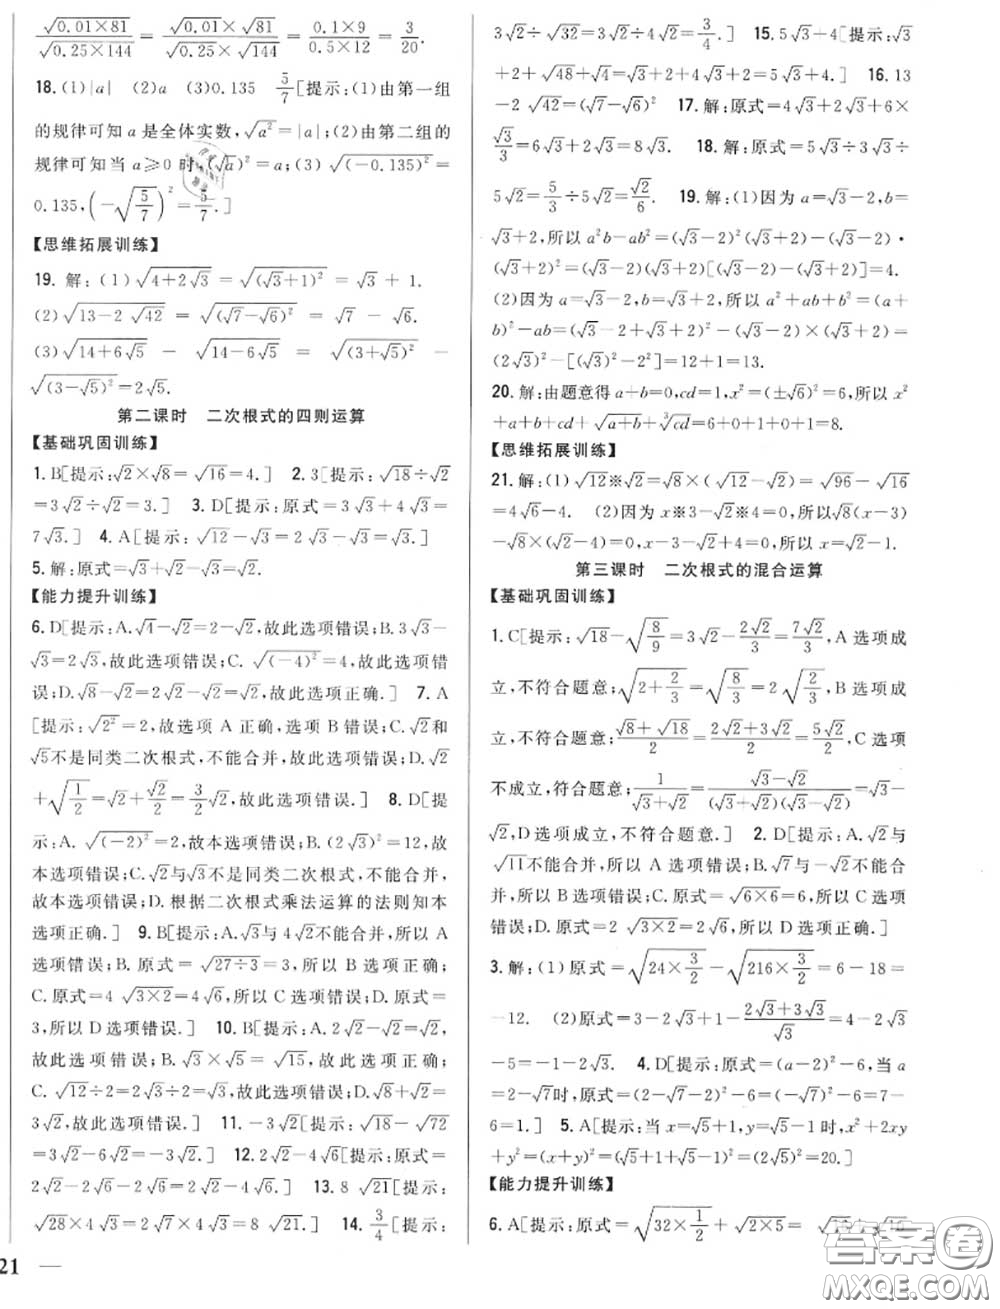 √(0.01×81)/√(0.25×144)=(√0.01×√81)/(√0.25×√144)=(0.1×9)/(0.5×12)=3/20.
18.(1)|a| (2)a (3)0.135 5/7[提示:(1)由第一组
的规律可知a是全体实数,√a²=|a|;(2)由第二组的
规律可知当a≥0时,(√a)²=a;(3)√(-0.135)²=
0.135,(-√(5/7))²=5/7.]
【思维拓展训练】
19.解:(1)√(4+2√3)=√(√3+1)²=√3+1.
(2)√(13-2√42)=√(√7-√6)²=√7-√6.
(3)√(14+6√5)-√(14-6√5)=√(3+√5)²-
√(3-√5)²=2√5.
第二课时 二次根式的四则运算
【基础巩固训练】
1.B[提示:√2×√8=√16=4.] 2.3[提示:√18÷√2
=3√2÷√2=3.] 3.D[提示:原式=3√3+4√3=
7√3.] 4.A[提示:√12-√3=2√3-√3=√3.]
5.解:原式=√3+√2-√3=√2.
【能力提升训练】
6.D[提示:A.√4-√2=2-√2,故此选项错误;B.3√3-
√3=2√3,故此选项错误;C.√(-4)²=4,故此选项错
误;D.√8-√2=2√2-√2=√2,故此选项正确.] 7.A
[提示:√2²=2,故选项A正确,选项B错误;C.√2和
√5不是同类二次根式,不能合并,故此选项错误;D.√2
+√(1/2)=√2+√2/2=3/2√2,故此选项错误.] 8.D[提
示:A.√(-2)²=2,故本选项错误;B.(2√3)²=12,故本
选项错误;C.√2与√3不是同类二次根式,不能合并,
故本选项错误;D.根据二次根式乘法运算的法则知本
选项正确.] 9.B[提示:A.√3与4√2不能合并,所以A
选项错误;B.原式=√(27÷3)=3,所以B选项正确;
C.原式=4√(3×2)=4√6,所以C选项错误;D.原式=
3,所以D选项错误.] 10.B[提示:A.2√2-√2=√2,
故此选项错误;B.√3×√5=√15,故此选项正确;
C.√12÷2=2√3÷2=√3,故此选项错误;D.√8+√2=
3√2,故此选项错误.] 11.-3√2[提示:√18-√72
=3√2-6√2=-3√2.] 12.2√2-4√6[提示:原式=
2√2-2√6-2√6=2√2-4√6.] 13.8√21[提示:
√28×4√3=2√7×4√3=8√21.] 14.3/4[提示:
21
3√2÷√32=3√2÷4√2=3/4.] 15.5√3+4[提示:√3
+2+√48+√4=√3+2+4√3+2=5√3+4.] 16.13
-2√42=(√7-√6)² 17.解:原式=4√3+2√3+6×
√3/3=6√3+2√3=8√3. 18.解:原式=5√3÷3√3÷
5√2=5/3÷5√2=√2/6. 19.解:(1)因为a=√3-2,b=
√3+2,所以a²b-ab²=(√3-2)²(√3+2)-(√3-2)·
(√3+2)²=(√3-2)(√3+2)[(√3-2)-(√3+2)]=4.
(2)因为a=√3-2,b=√3+2,所以a²+ab+b²=(a+
b)²-ab=(√3-2+√3+2)²-(√3-2)×(√3+2)=
(2√3)²-[(√3)²-2²]=12+1=13.
20.解:由题意得a+b=0,cd=1,x²=(±√6)²=6,所以x²
+a+b+cd+√(a+b)+∛cd=6+0+1+0+1=8.
【思维拓展训练】
21.解:(1)√12※√2=√8×(√12-√2)=√96-√16
=4√6-4. (2)因为x※3-√2※4=0,所以√8(x-3)
-√8×(√2-4)=0,所以x=√2-1.
第三课时 二次根式的混合运算
【基础巩固训练】
1.C[提示:√18-√(8/9)=3√2-2√2/3=7√2/3,A选项成
立,不符合题意;√(2+2/3)=√(8/3)=2√(2/3),B选项成
立,不符合题意;(√8+√18)/2=(2√2+3√2)/2=5√2/2,C选项
不成立,符合题意;1/(√3+√2)=(√3-√2)/((√3+√2)(√3-√2))=√3-
√2,D选项成立,不符合题意.] 2.D[提示:A.√2与
√11不能合并,所以A选项错误;B.√7与-√2不能合
并,所以B选项错误;C.原式=√(6×6)=6,所以C选项
错误;D.原式=2√(3×2)=2√6,所以D选项正确.]
3.解:(1)原式=√(24×3/2)-√(216×3/2)=6-18=
-12. (2)原式=4-2√3+1-(2√3+3√3)/√3=4-2√3
-5=-1-2√3. 4.D[提示:原式=(a-2)²-6,当a
=2-√7时,原式=(2-√7-2)²-6=(-√7)²-6=7-
6=1.] 5.A[提示:当x=√5+1,y=√5-1时,x²+2xy
+y²=(x+y)²=(√5+1+√5-1)²=(2√5)²=20.]
【能力提升训练】
6.A[提示:原式=√(32×1/2)+√(2×5)=
答案圈
MXQE.COM